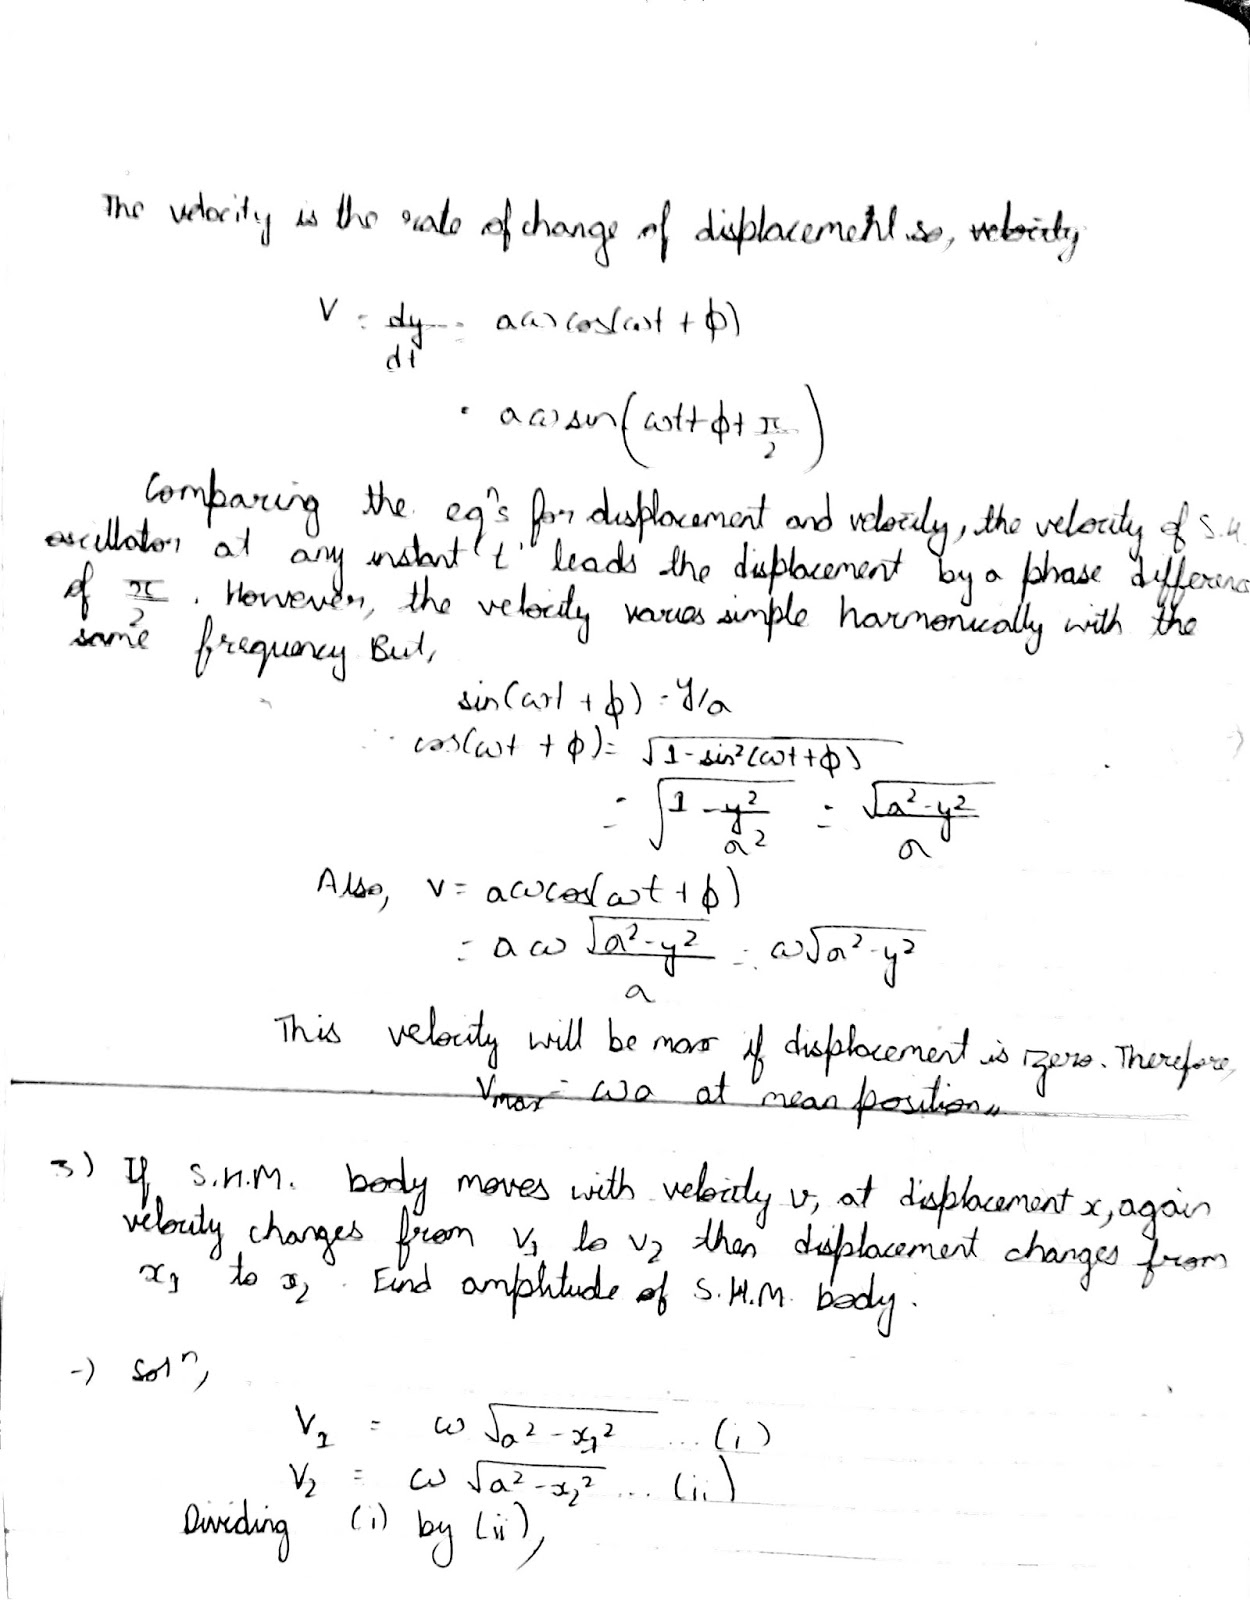 The velocity is the rate of change of displacement. so, velocity
V = dy/dt = aω cos(ωt + φ)
= aω sin(ωt + φ + π/2)
Comparing the eqⁿs for displacement and velocity, the velocity of S.H.
oscillator at any instant 't' leads the displacement by a phase differenc
of π/2. However, the velocity varies simple harmonically with the
same frequency But,
sin(ωt + φ) = y/a
∴ cos(ωt + φ) = √1 - sin²(ωt + φ)
= √1 - y²/a² = √a² - y²/a
Also, v = aω cos(ωt + φ)
= aω √a² - y²/a = ω√a² - y²
This velocity will be max if displacement is zero. Therefore,
Vmax = ωa at mean position,,
3) If S.H.M. body moves with velocity v, at displacement x, again
velocity changes from v₁ to v₂ then displacement changes from
x₁ to x₂. Find amplitude of S.H.M. body.
→ Solⁿ,
V₁ = ω √a² - x₁² ... (i)
V₂ = ω √a² - x₂² ... (ii)
Dividing (i) by (ii),